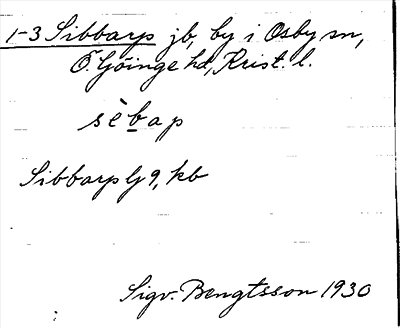 1-3 Sibbarp jb, by i Osby sn,
Ö. Göinge hd, Krist. l.
sèbap
Sibbarp lj 9, kb
Sigv. Bengtsson 1930